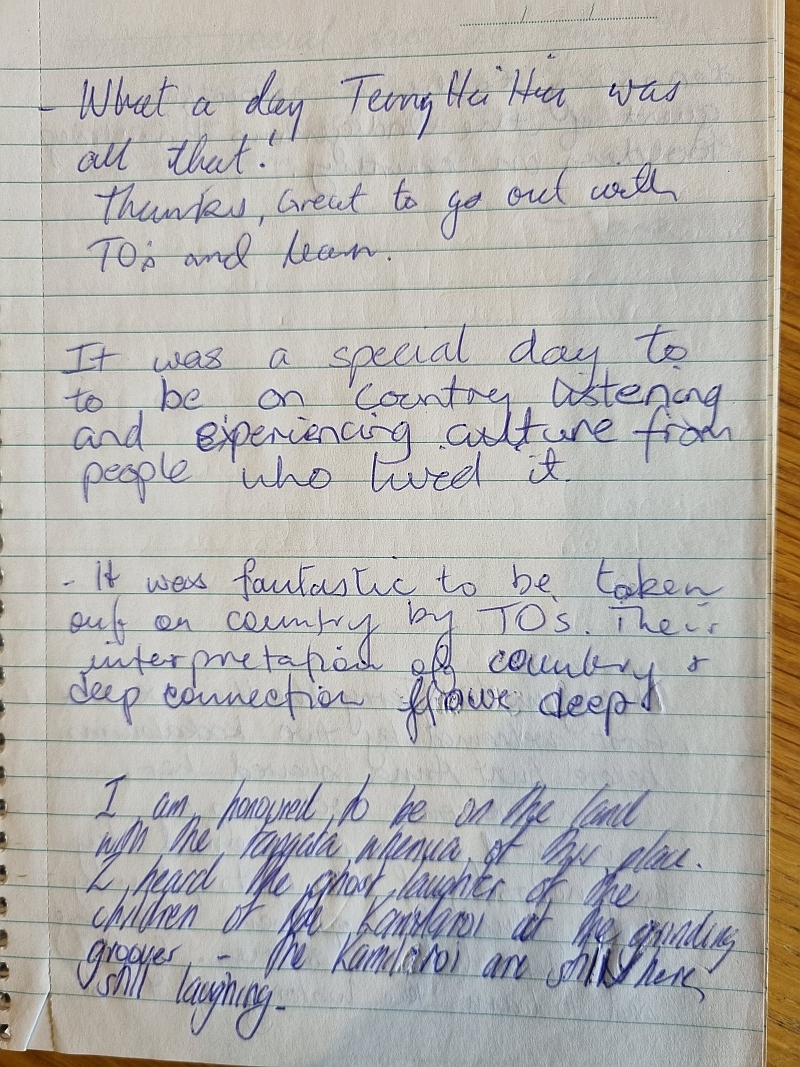 - What a day Terry Hie Hie was
all that!
Thanks, Great to go out with
TO's and learn.
It was a special day to
to be on Country listening
and experiencing culture from
people who lived it.
- It was fantastic to be taken
out on country by TO's. Their
interpretation of country &
deep connection flows deep
I am honoured to be on the land
with the tangata whenua of this place.
I heard the ghost laughter of the
children of the Kamilaroi at the grinding
grooves - the Kamilaroi are still here,
still laughing.